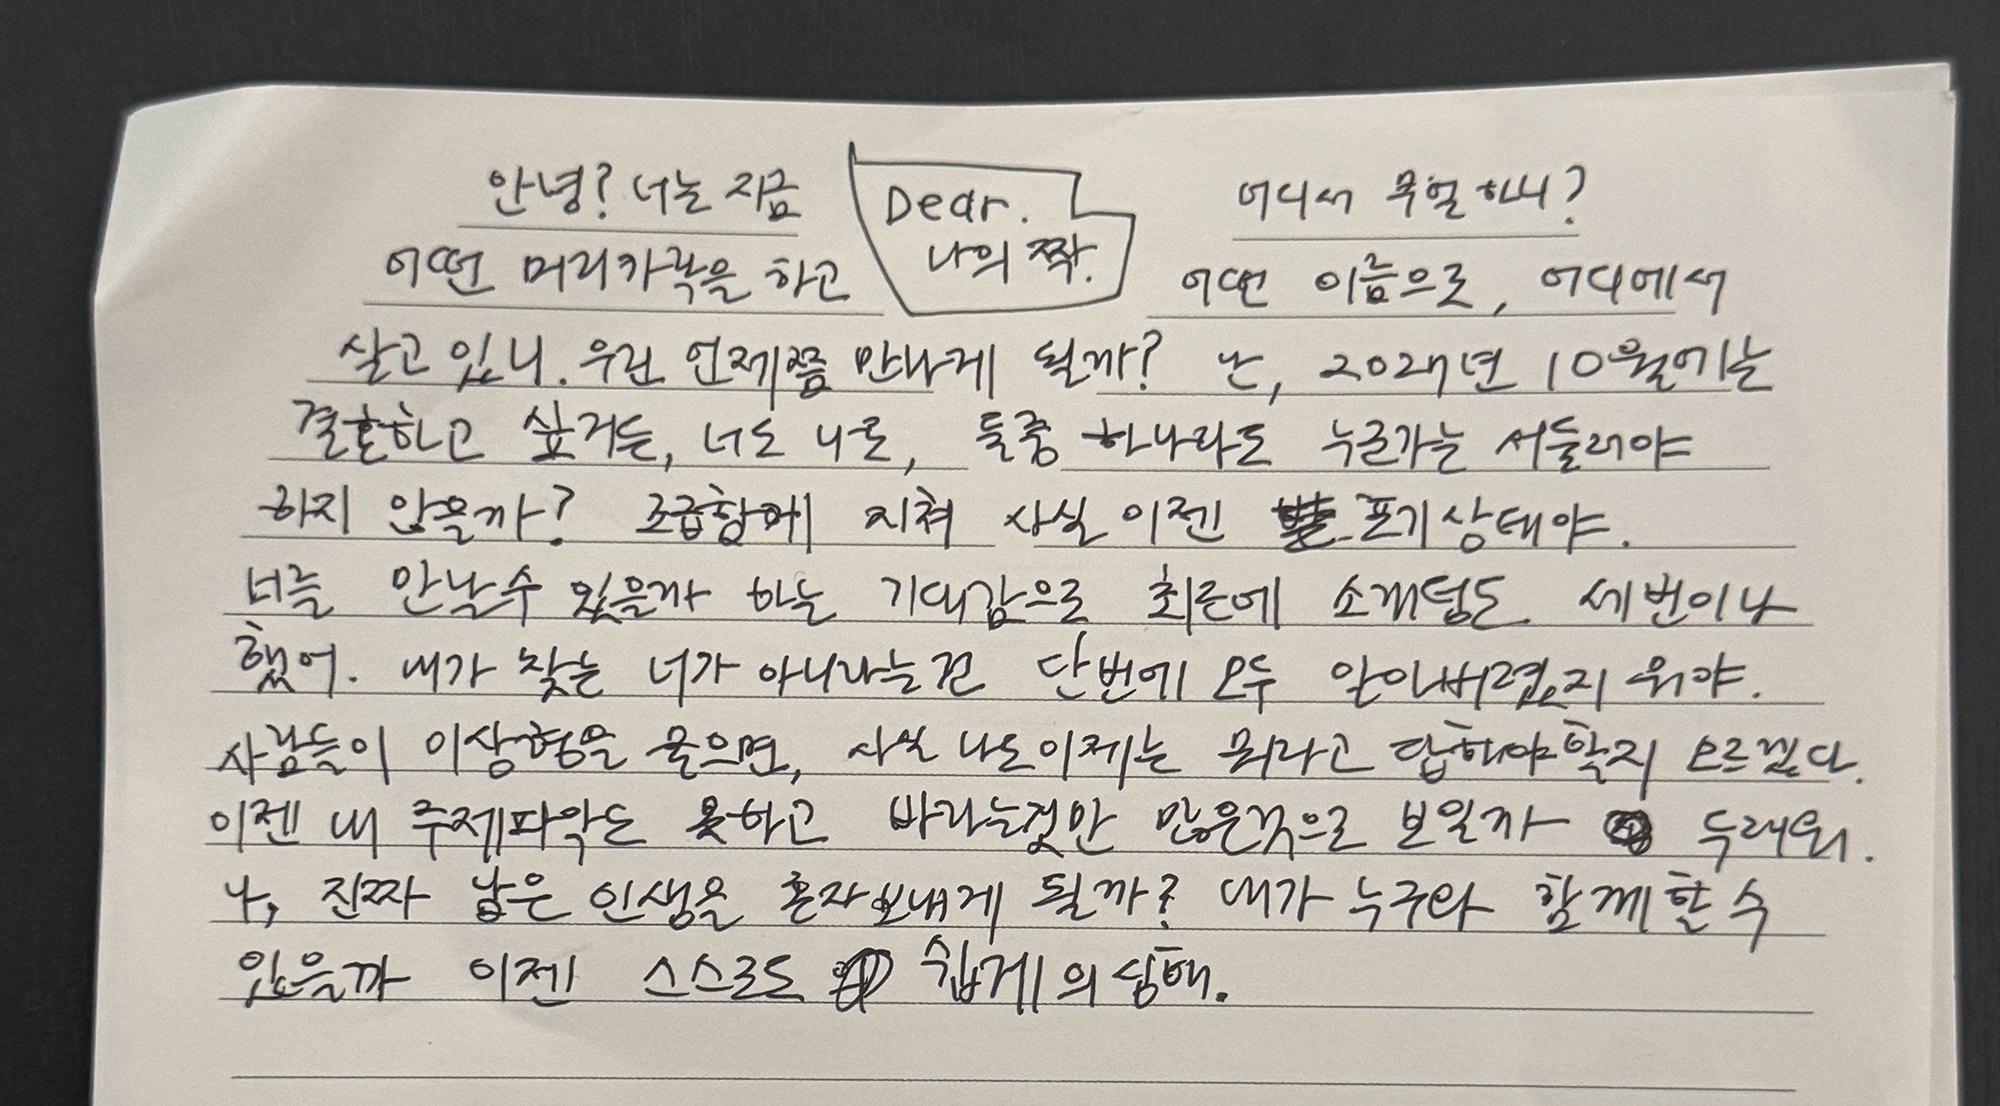 Dear.
나의 짝.
안녕? 너는 지금 어디서 무얼 하니?
어떤 머리카락을 하고 어떤 이름으로, 어디에서
살고 있니. 우린 언제쯤 만나게 될까? 난, 2027년 10월에는
결혼하고 싶거든, 너도 나도, 둘중 하나라도 누군가는 서둘러야
하지 않을까? 조급함에 지쳐 사실 이젠 포기상태야.
너를 만날수 있을까 하는 기대감으로 최근에 소개팅도 세번이나
했어. 내가 찾는 너가 아니라는건 단번에 모두 알아버렸지 뭐야.
사람들이 이상형을 물으면, 사실 나도이제는 뭐라고 답해야할지 모르겠다.
이젠 내 주제파악도 못하고 바라는것만 많은것으로 보일까 두려워.
나, 진짜 남은 인생을 혼자보내게 될까? 내가 누구와 함께할 수
있을까 이젠 스스로도 쉽게 의심해.